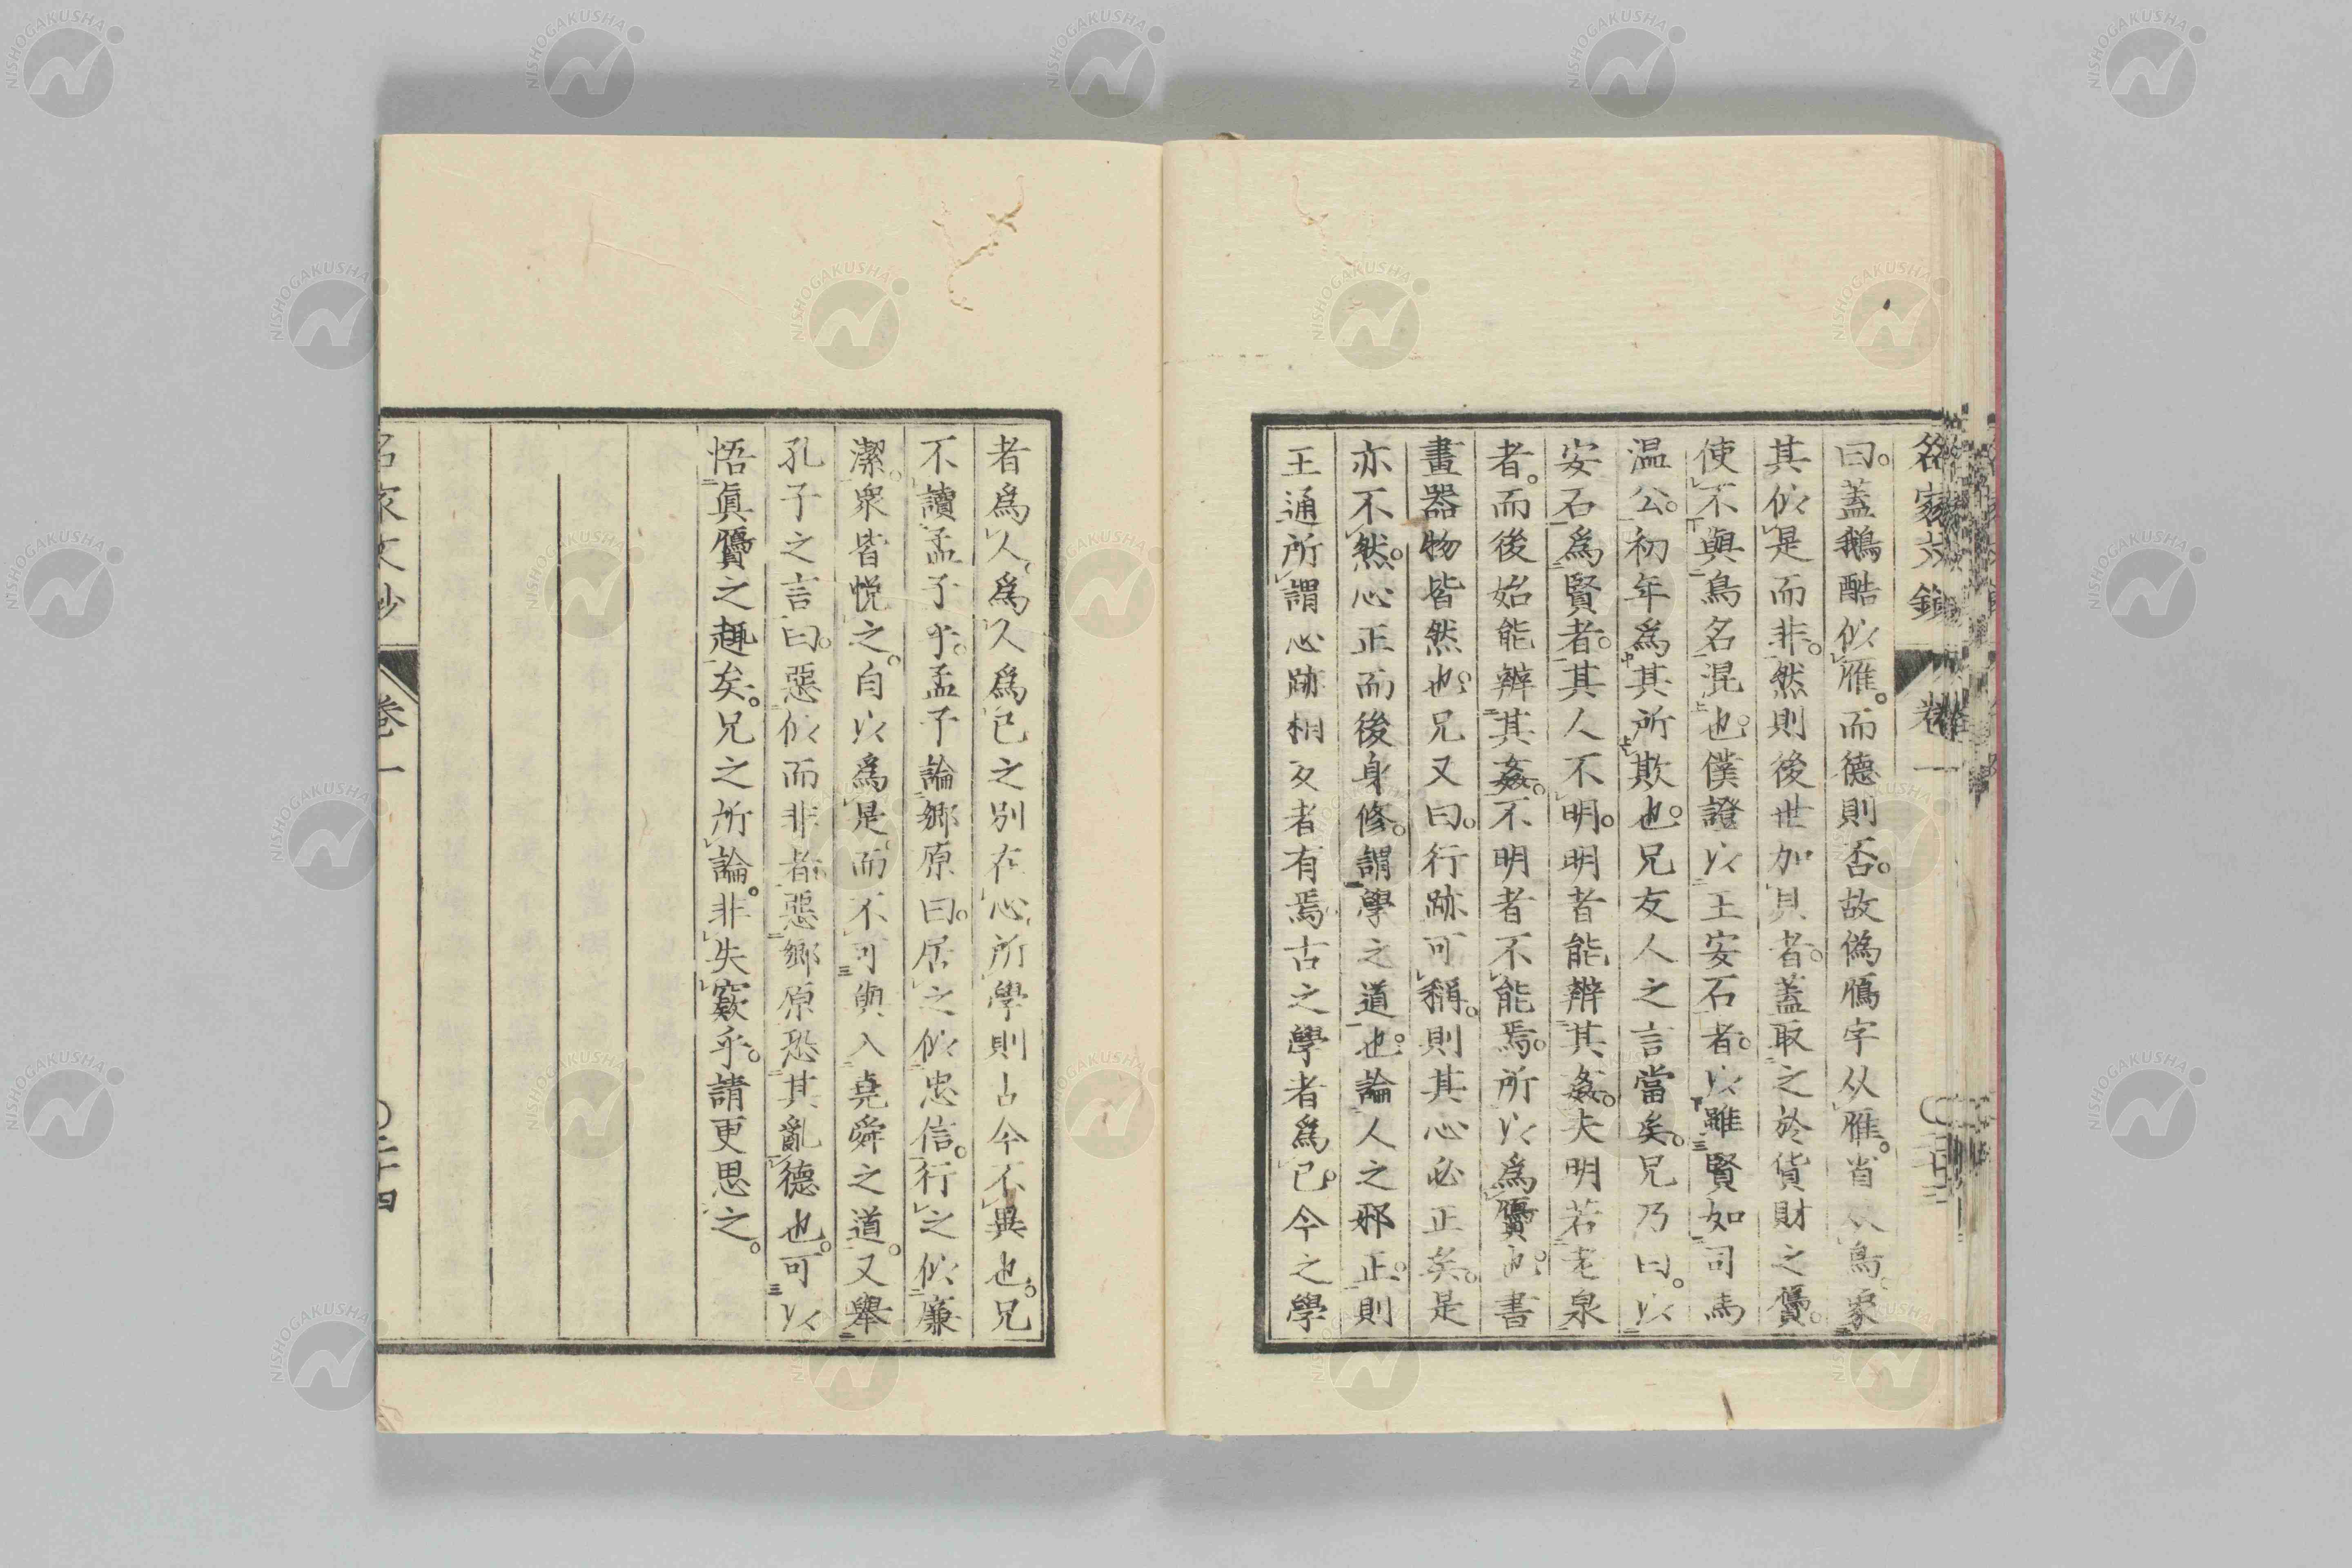 曰。蓋鵝酷似雁。而德則否。故偽鴈字从雁。省从鳥。象
其似是而非。然則後世加貝者。蓋取之於貨財之贗。
使不與鳥名混也。僕證以王安石者。以雖賢如司馬
温公。初年爲其所欺也。兄友人之言當矣。兄乃曰。以
安石爲賢者。其人不明。明者能辨其姦。夫明若老泉
者。而後始能辨其姦。不明者不能焉。所以爲贗也。書
畫器物皆然也。兄又曰。行跡可稱。則其心必正矣。是
亦不然。心正而後身修。謂學之道也。論人之邪正。則
王通所謂心跡相反者有焉。古之學者爲己。今之學
者爲人。爲人爲己之別在心。所學則古今不異也。兄
不讀孟子乎。孟子論鄉原曰。居之似忠信。行之似廉
潔。衆皆悦之。自以爲是。而不可與入堯舜之道。又舉
孔子之言曰。惡似而非者。惡鄉原恐其亂德也。可以
悟眞贗之趣矣。兄之所論。非失竅乎。請更思之。
名家文抄
卷一
〇二十四
NISHOGAKUSHA